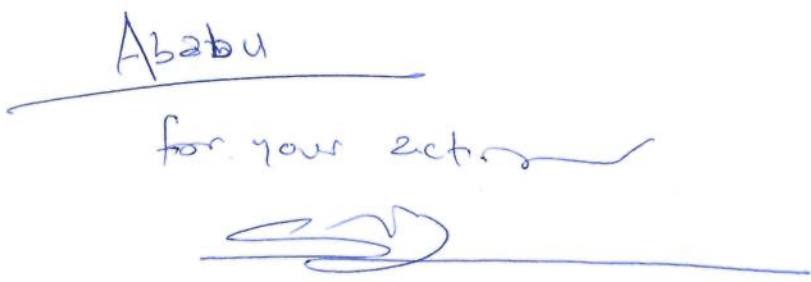 Ababu
for your action